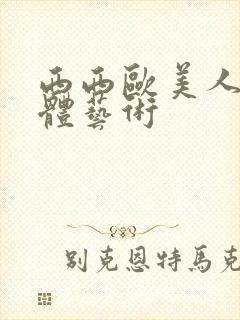 西西歐美人
體藝術
別克恩特馬克